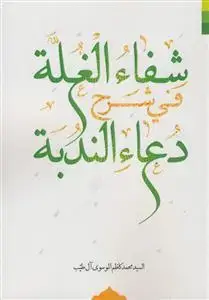 شفاء الغلة
في شرح
دعاء الندبة
السيد محمد كاظم الموسوي آل طيب